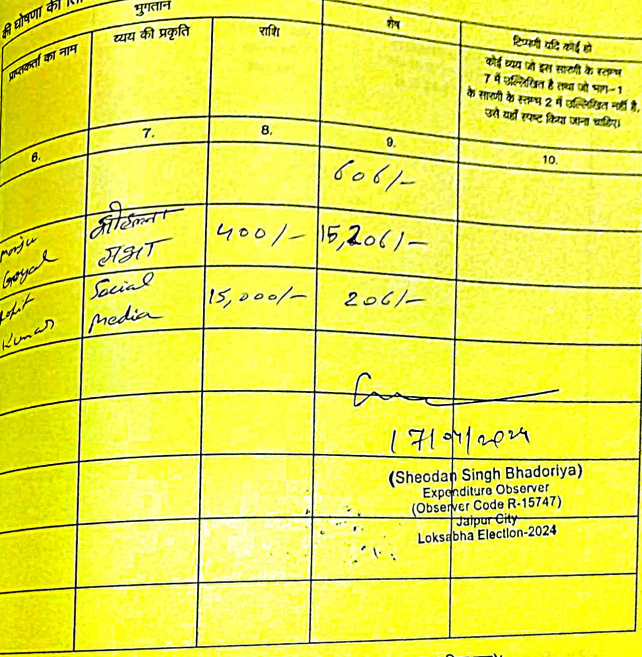 की घोषणा की
भुगतान
शेष
टिप्पणी यदि कोई हो
प्राप्तकर्ता का नाम
व्यय की प्रकृति
राशि
कोई व्यय जो इस सारणी के स्तम्भ
7 में उल्लिखित है तथा जो भाग-1
के सारणी के स्तम्भ 2 में उल्लिखित नहीं है,
उसे यहाँ स्पष्ट किया जाना चाहिए।
6.
7.
8.
9.
10.
606/-
Goyal
400/-
15,206/-
Kumar
Social
Media
15,000/-
206/-
17/04/2024
(Sheodan Singh Bhadoriya)
Expenditure Observer
(Observer Code R-15747)
Jaipur City
Loksabha Election-2024